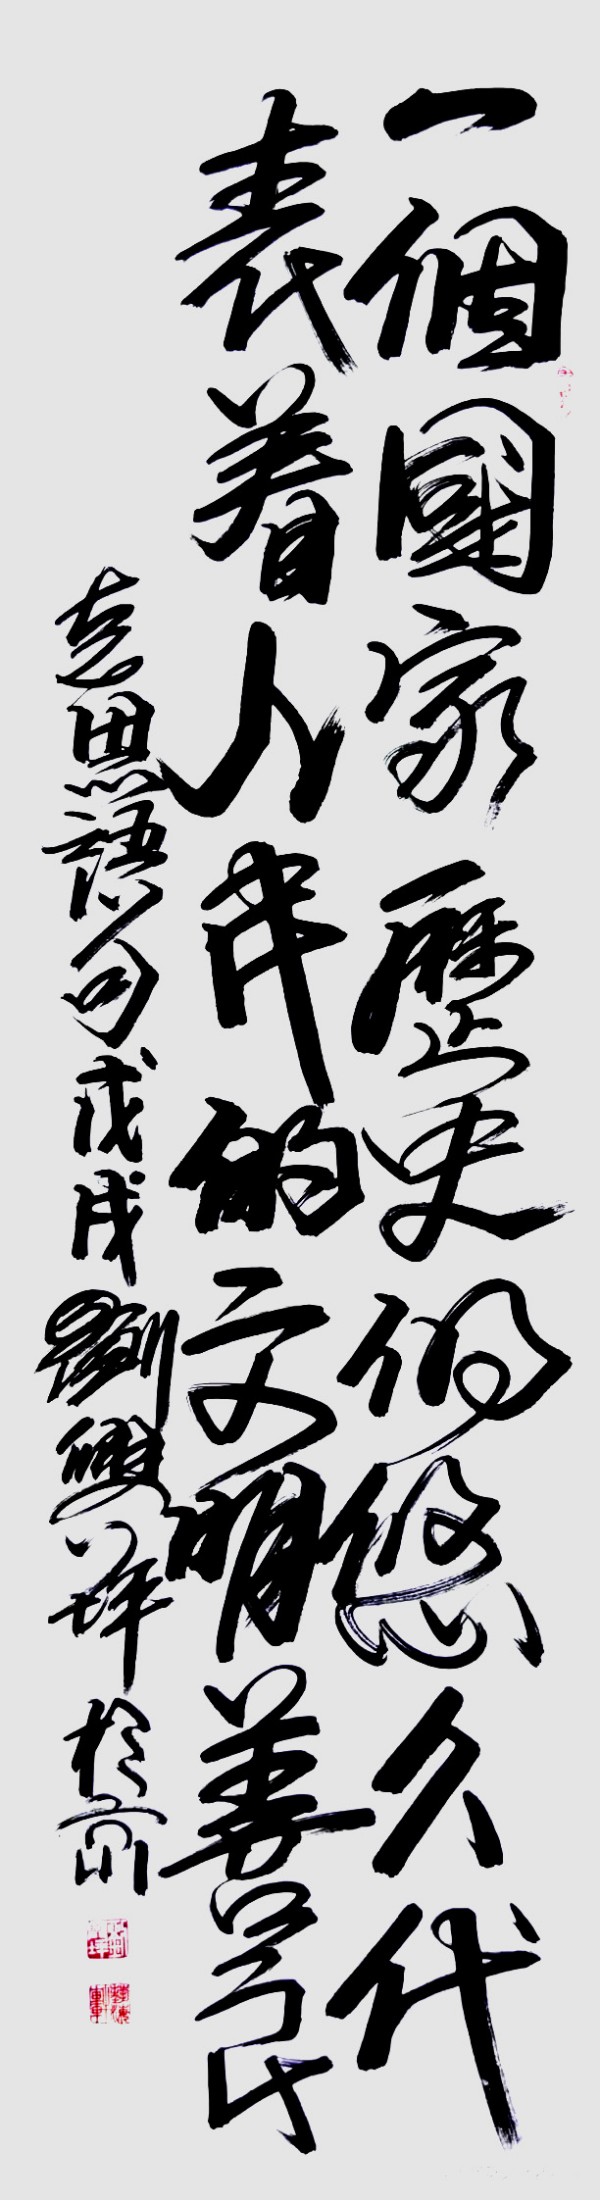 一個國家歷史的悠久代
表着人民的文明善良
克思語句戊戌劉雙坪於京